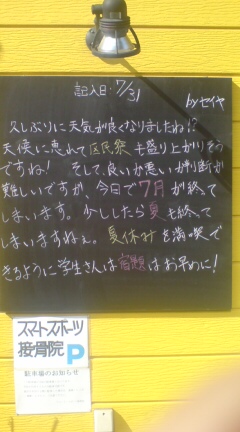 記入日・7/31
byセイヤ
久しぶりに天気が良くなりましたね!?
天候に恵れて区民祭も盛り上がりそう
ですね! そして、良いか悪いか判断が
難しいですが、今日で7月が終って
しまいます。少ししたら夏も終って
しまいますねぇ。夏休みを満喫で
きるように学生さんは宿題はお早めに!
スマートスポーツ
接骨院 P
駐車場のお知らせ